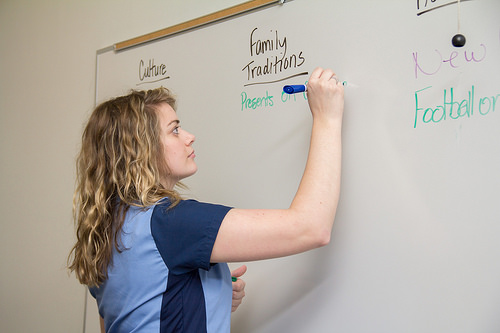 Culture
Family
Traditions
Presents on
New
Football on